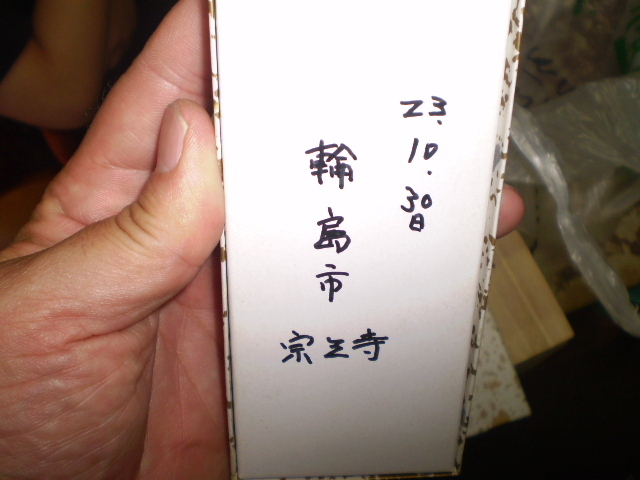 23.10.30日
輪島市
宗玄寺